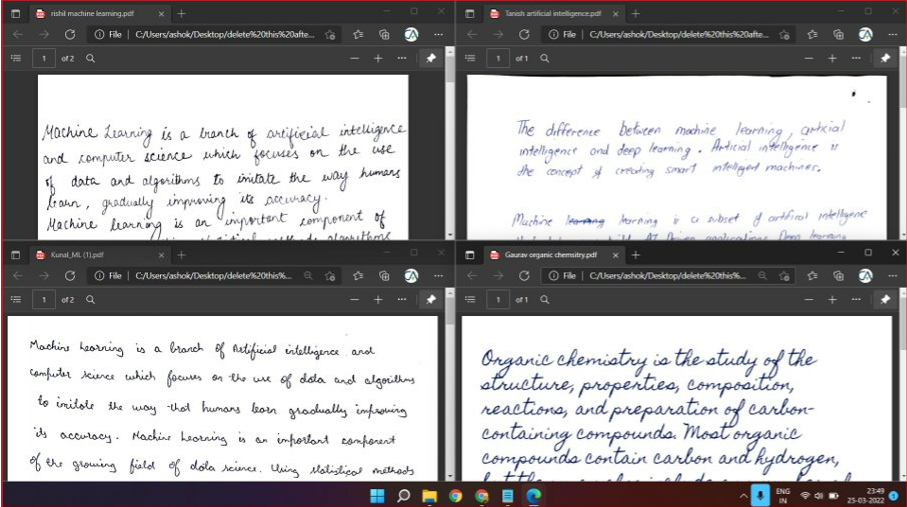 rishil machine learning.pdf
File | C:/Users/ashok/Desktop/delete%20this%20afte...
1 of 2
Machine Learning is a branch of artificial intelligence
and computer science which focuses on the use
of data and algorithms to imitate the way humans
learn, gradually improving its accuracy.
Machine learning is an important component of
algorithms
Tanish artificial intelligence.pdf
File | C:/Users/ashok/Desktop/delete%20this%20afte...
1 of 1
The difference between machine learning, articial
intelligence and deep learning. Articial intelligence is
the concept of creating smart intelligent machines.
Machine learning learning is a subset of artifical intelligence
AI Driven applications. Deep learning
Kunal_ML (1).pdf
File | C:/Users/ashok/Desktop/delete%20this%...
1 of 2
Machine Learning is a branch of Artificial intelligence and
computer science which focuses on the use of data and algorithms
to imitate the way that humans learn gradually improving
its accuracy. Machine Learning is an important component
of the growing field of data science. Using statistical methods
Gaurav organic chemsitry.pdf
File | C:/Users/ashok/Desktop/delete%20this%...
1 of 1
Organic chemistry is the study of the
structure, properties, composition,
reactions, and preparation of carbon-
containing compounds. Most organic
compounds contain carbon and hydrogen,
ENG
IN
23:49
25-03-2022